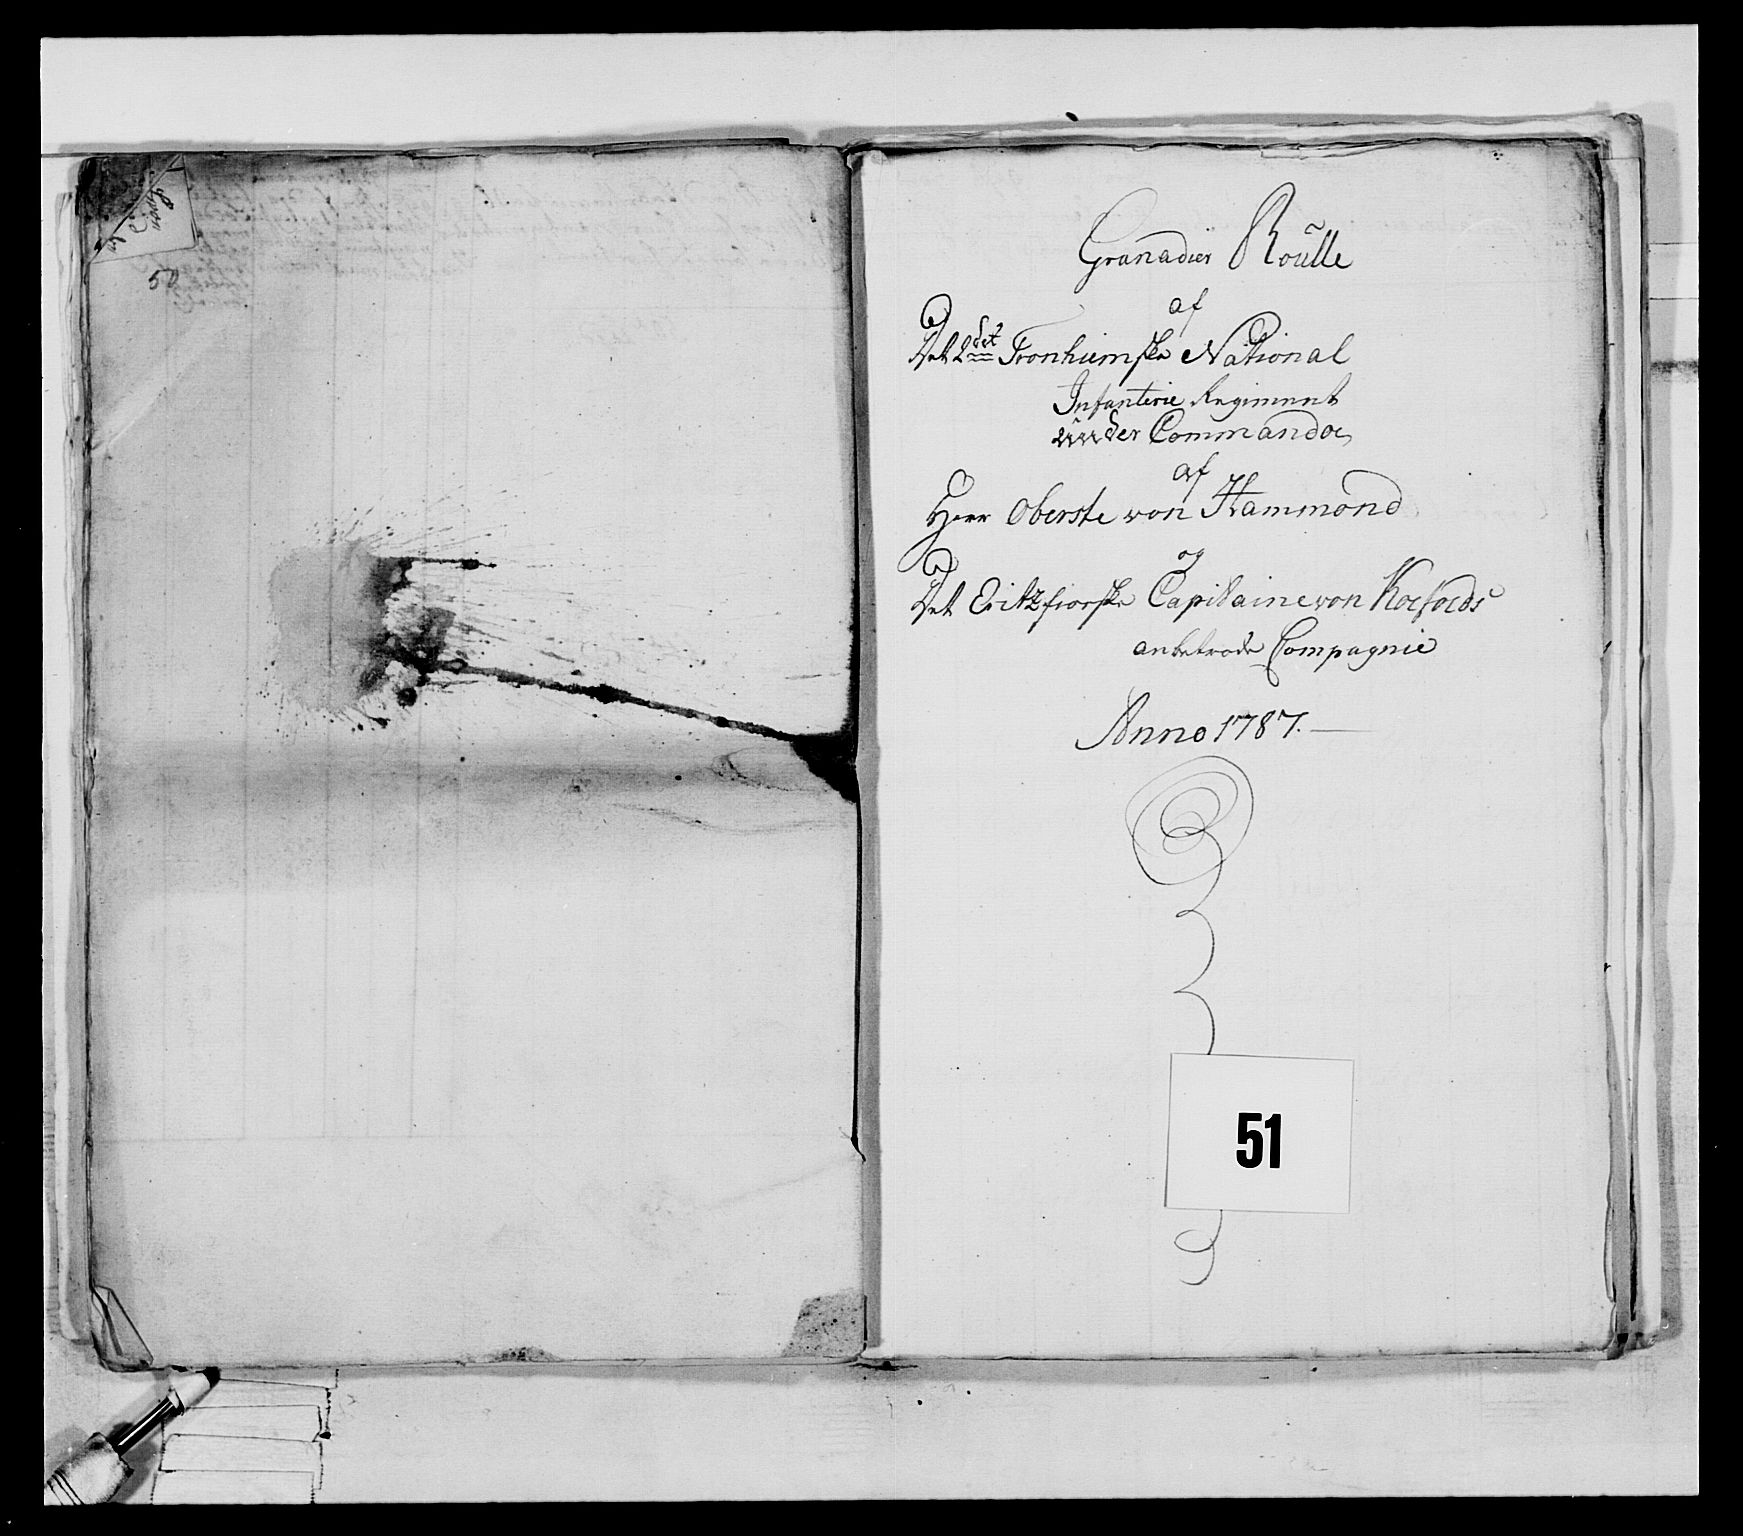 50
Granadier Roulle
af
Det 2det Tronhiemske National
Infanterie Regiment
under Commando
af
Herr Oberste von Hammond
og
Det Eitzfiorske Capitaine von Koefoeds
anbetrode Compagnie
Anno 1787.
51